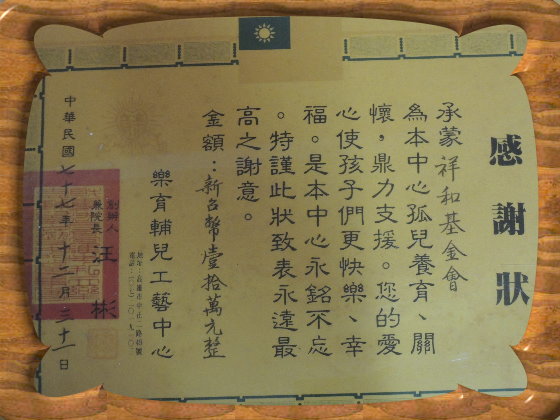 感謝狀
承蒙祥和基金會
為本中心孤兒養育、關
懷，鼎力支援。您的愛
心使孩子們更快樂、幸
福。是本中心永銘不忘
。特謹此狀致表永遠最
高之謝意。
金額：新台幣壹拾萬元整
樂育輔兒工藝中心
創辦人
兼院長
汪彬
中華民國七十七年十二月三十一日